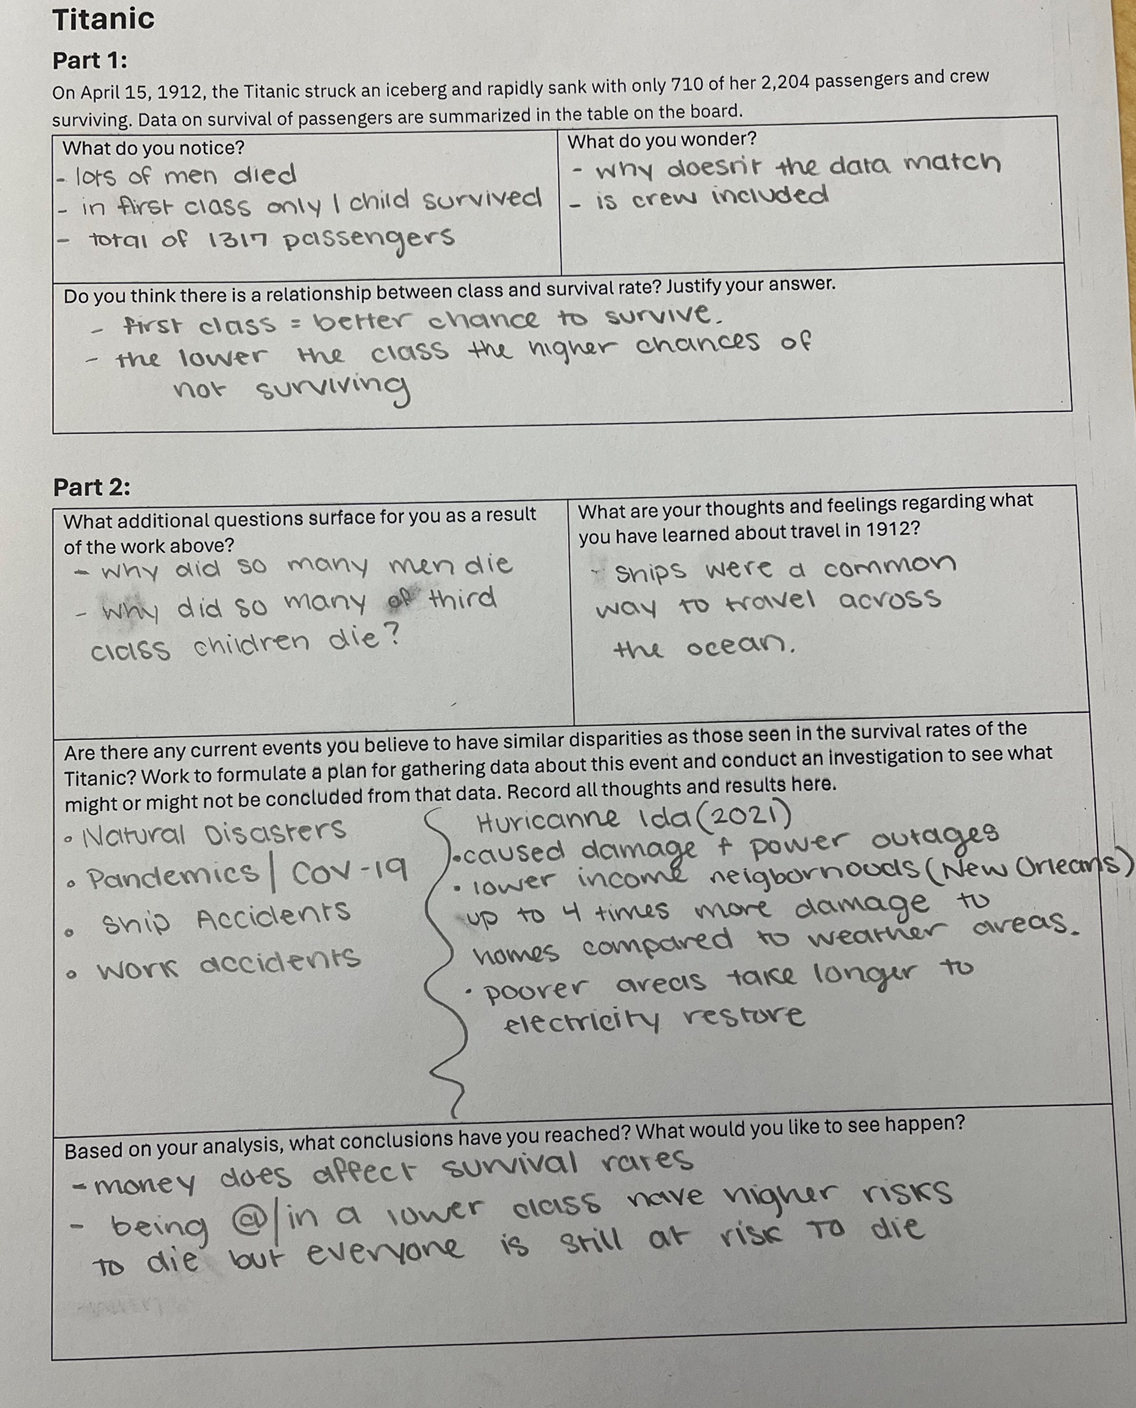 Titanic
Part 1:
On April 15, 1912, the Titanic struck an iceberg and rapidly sank with only 710 of her 2,204 passengers and crew
surviving. Data on survival of passengers are summarized in the table on the board.
What do you notice?
- lots of men died
- in first class only 1 child survived
- total of 1317 passengers
What do you wonder?
- why doesn't the data match
- is crew included
Do you think there is a relationship between class and survival rate? Justify your answer.
- first class = better chance to survive.
- the lower the class the higher chances of
not surviving
Part 2:
What additional questions surface for you as a result
of the work above?
- why did so many men die
- why did so many of third
class children die?
What are your thoughts and feelings regarding what
you have learned about travel in 1912?
- ships were a common
way to travel across
the ocean.
Are there any current events you believe to have similar disparities as those seen in the survival rates of the
Titanic? Work to formulate a plan for gathering data about this event and conduct an investigation to see what
might or might not be concluded from that data. Record all thoughts and results here.
• Natural Disasters
• Pandemics | Cov-19
• Ship Accidents
• Work accidents
Huricanne Ida (2021)
• caused damage + power outages
• lower income neigbornoods (New Orleans)
up to 4 times more damage to
homes compared to wearher areas.
• poorer areas take longer to
electricity restore
Based on your analysis, what conclusions have you reached? What would you like to see happen?
- money does affect survival rates
- being @/in a lower class have higher risks
to die but everyone is still at risk to die